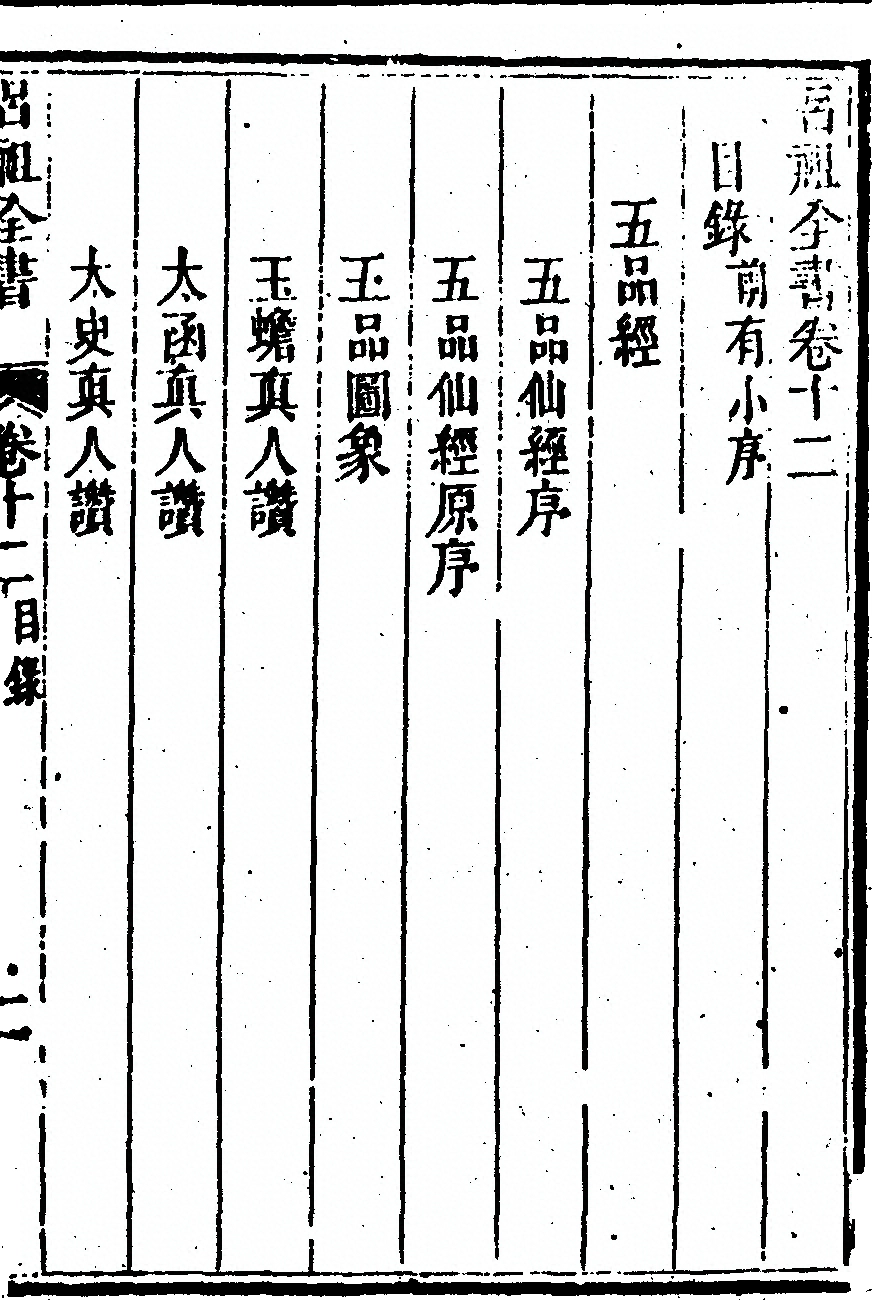 呂祖全書卷十二
目錄前有小序
五品經
五品仙經序
五品仙經原序
玉品圖象
玉蟾真人讚
太函真人讚
太史真人讚
呂祖全書 卷十二目錄 一